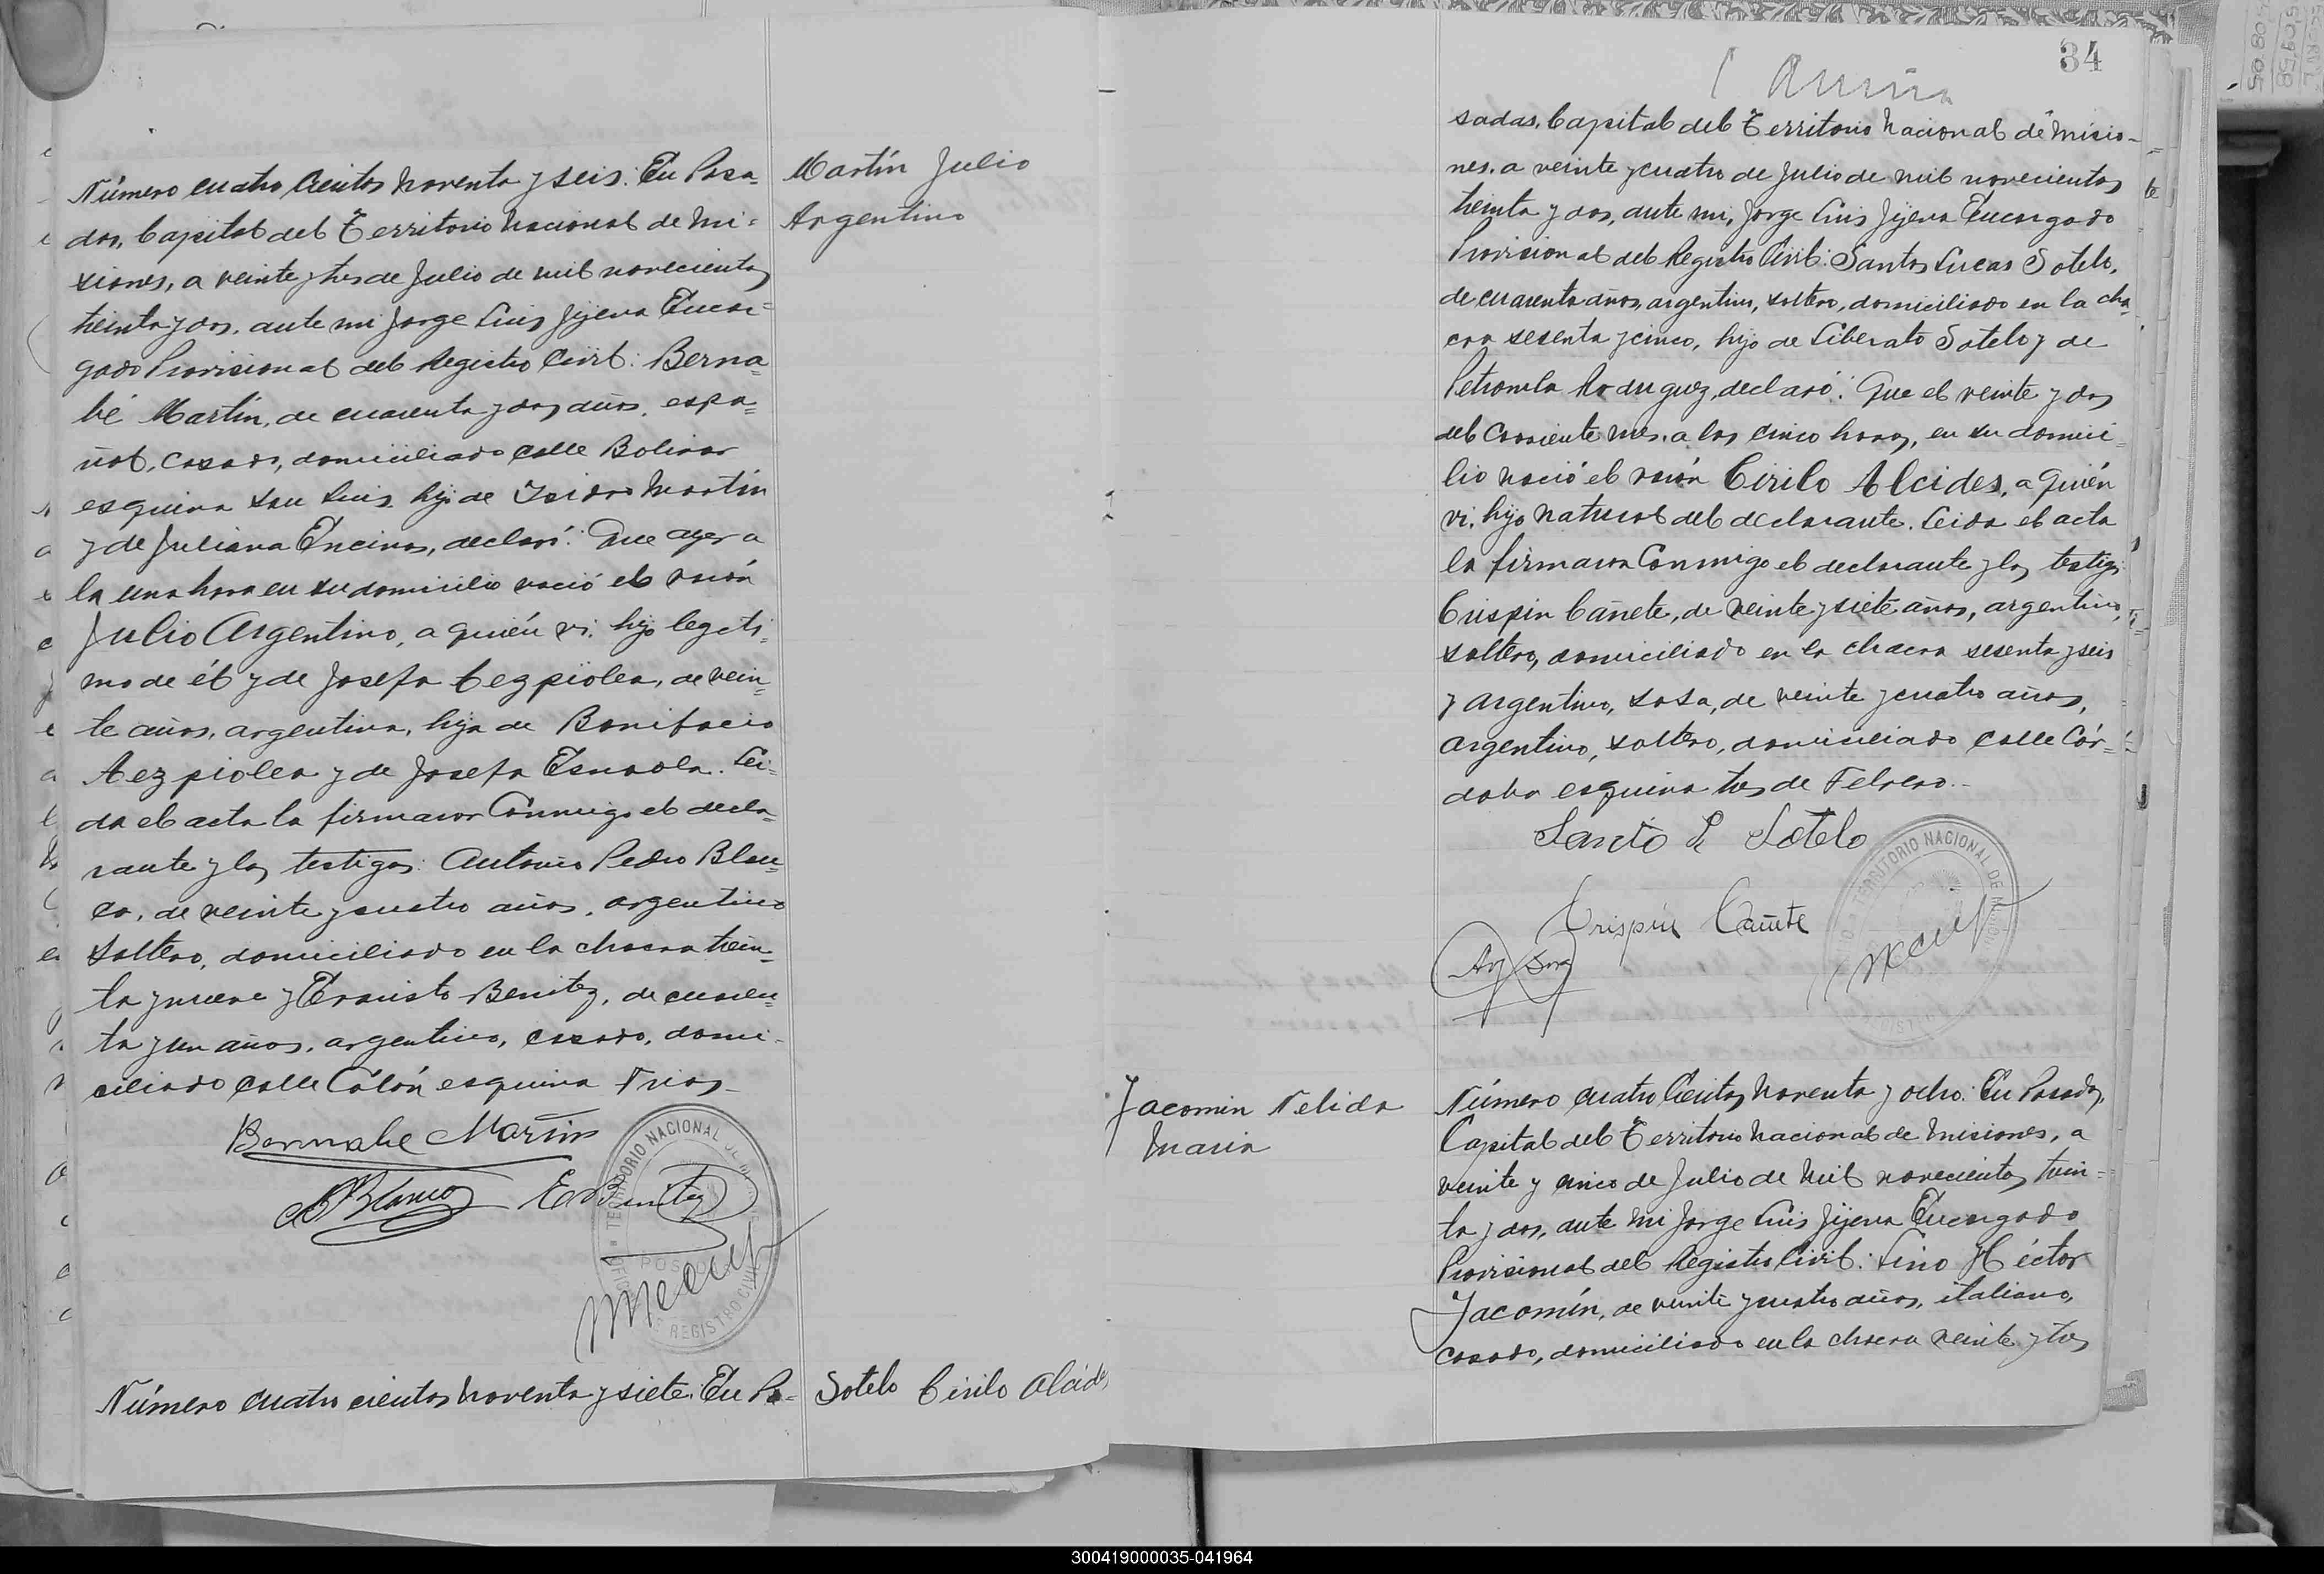 Número cuatro cientos noventa y seis: En Posa-
das, Capital del Territorio Nacional de Mi-
siones, a veinte y tres de Julio de mil novecientos
treinta y dos, ante mi Jorge Luis Jijena Encar-
gado Provisional del Registro Civil: Berna-
bé Martín, de cuarenta y dos años, espa-
ñol, casado, domiciliado calle Bolivar
esquina San Luis, hijo de Isidro Martín
y de Juliana Encinas, declaró: Que ayer a
la una hora en su domicilio nació el varón
Julio Argentino, a quién vi, hijo legíti-
mo de él y de Josefa Aezpiolea, de vein-
te años, argentina, hija de Bonifacio
Aezpiolea y de Josefa Esnaola. Lei-
da el acta la firmaron Conmigo el decla-
rante y los testigos: Antonio Pedro Blan-
co, de veinte y cuatro años, argentino
soltero, domiciliado en la chacra trein-
ta y nueve y Evaristo Benitez, de cuaren-
ta y un años, argentino, casado, domi-
ciliado calle Colón esquina Frias.-
Bernabe Martin
A P Blanco E Benitez
TERRITORIO NACIONAL DE
REGISTRO CIVIL
Martín Julio
Argentino
Número cuatro cientos noventa y siete: En Po-
Sotelo Cirilo Alcides
34
sadas, Capital del Territorio Nacional de Misio-
nes, a veinte y cuatro de Julio de mil novecientos
treinta y dos, ante mi, Jorge Luis Jijena Encargado
Provisional del Registro Civil: Santos Lucas Sotelo,
de cuarenta años, argentino, soltero, domiciliado en la cha-
cra sesenta y cinco, hijo de Liberato Sotelo y de
Petronila Rodriguez, declaró: Que el veinte y dos
del Corriente mes, a las cinco horas, en su domici-
lio nació el varón Cirilo Alcides, a quién
vi, hijo natural del declarante. Leida el acta
la firmaron Conmigo el declarante y los testigos
Crispin Cañete, de veinte y siete años, argentino,
soltero, domiciliado en la chacra sesenta y seis
y Argentino, Sosa, de veinte y cuatro años,
argentino, soltero, domiciliado calle Cór-
doba esquina tres de Febrero.-
Santo L Sotelo
Crispin Cañete
Arg Sosa
TERRITORIO NACIONAL DE
Jacomin Nelida
Maria
Número cuatro Cientos noventa y ocho: En Posadas,
Capital del Territorio Nacional de Misiones, a
veinte y cinco de Julio de Mil novecientos trein-
ta y dos, ante mi Jorge Luis Jijena Encargado
Provisional del Registro Civil: Lino Héctor
Jacomín, de veinte y cuatro años, italiano,
casado, domiciliado en la chacra veinte y tres
300419000035-041964